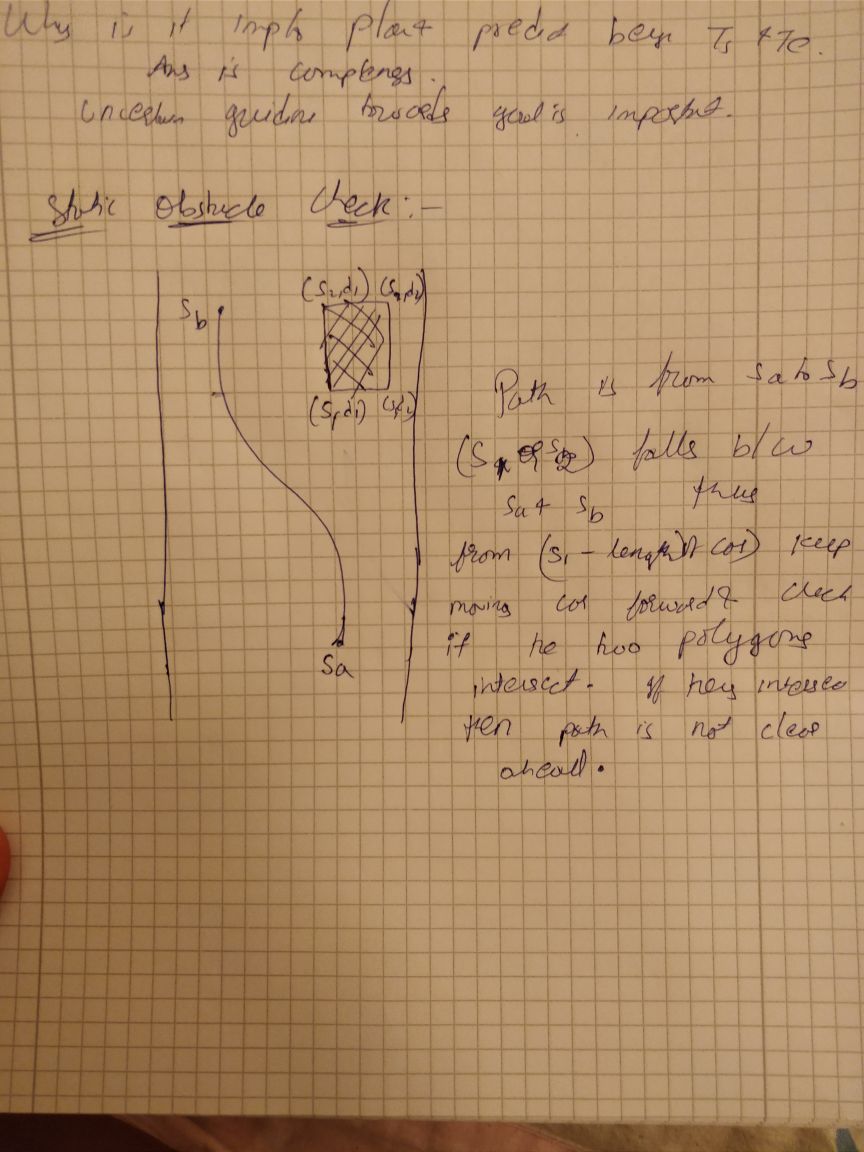 Why is it imp to plan & predict beyo Ts & Te.
Ans is completeness.
Uncertain guidance towards goal is important.
Static Obstacle Check:-
Sb
(S2,d1) (S2,d2)
(S1,d1)
Sa
Path is from Sa to Sb
falls b/w
Sa & Sb thus
from (S1 - length of car) keep
moving car forward & check
if the two polygons
intersect. If they intersec
then path is not clear
ahead.